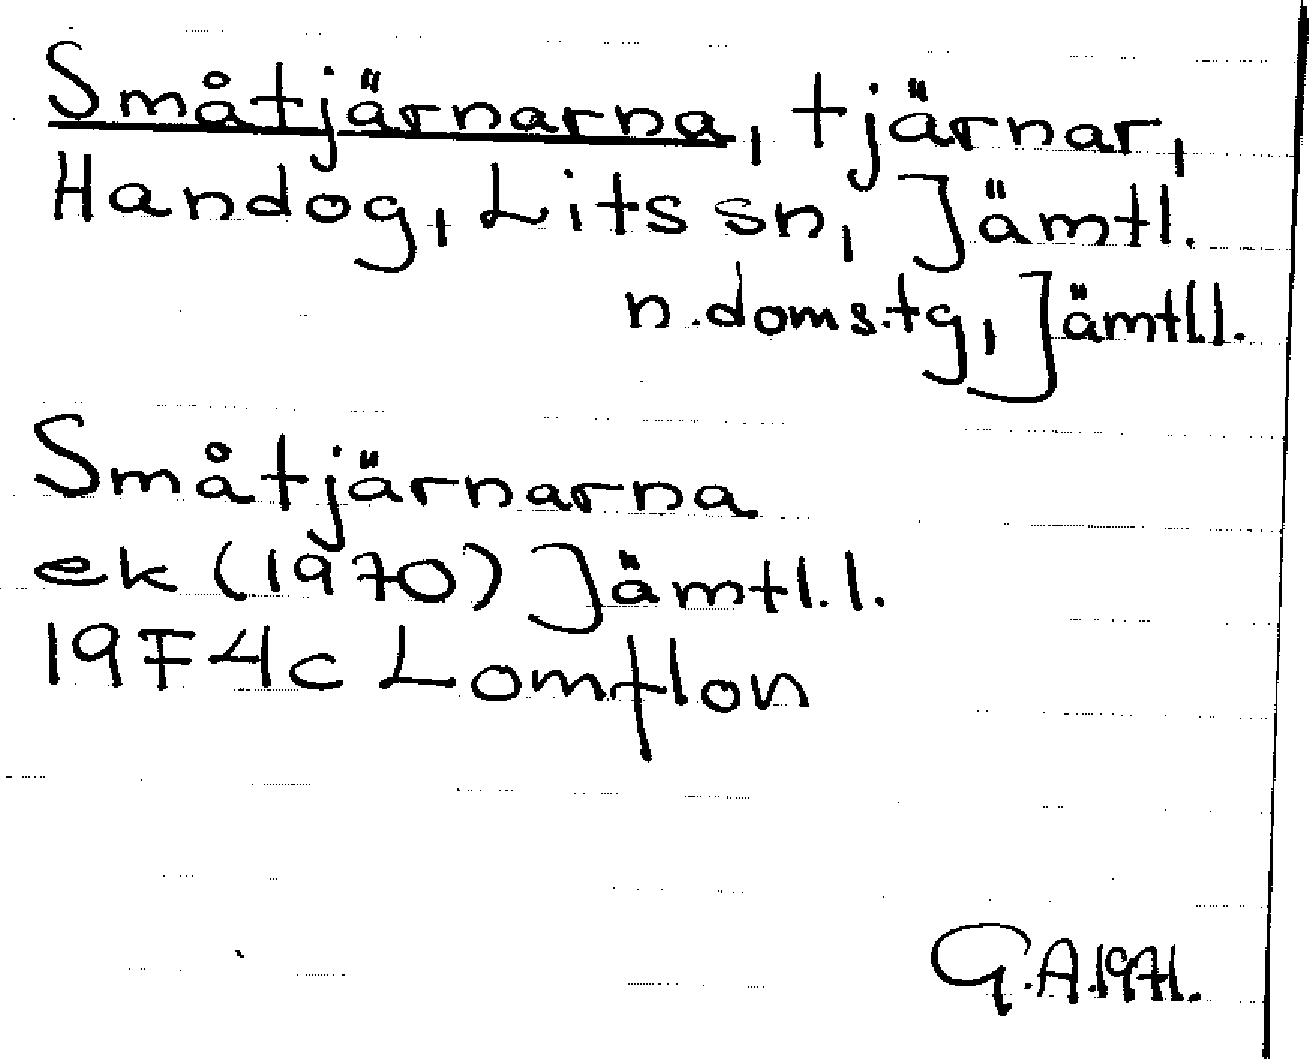 Småtjärnarna, tjärnar,
Handog, Lits sn, Jämtl.
n.doms.tg, Jämtl.l.
Småtjärnarna
ek (1970) Jämtl.l.
19F4c Lomflon
G.A.1971.